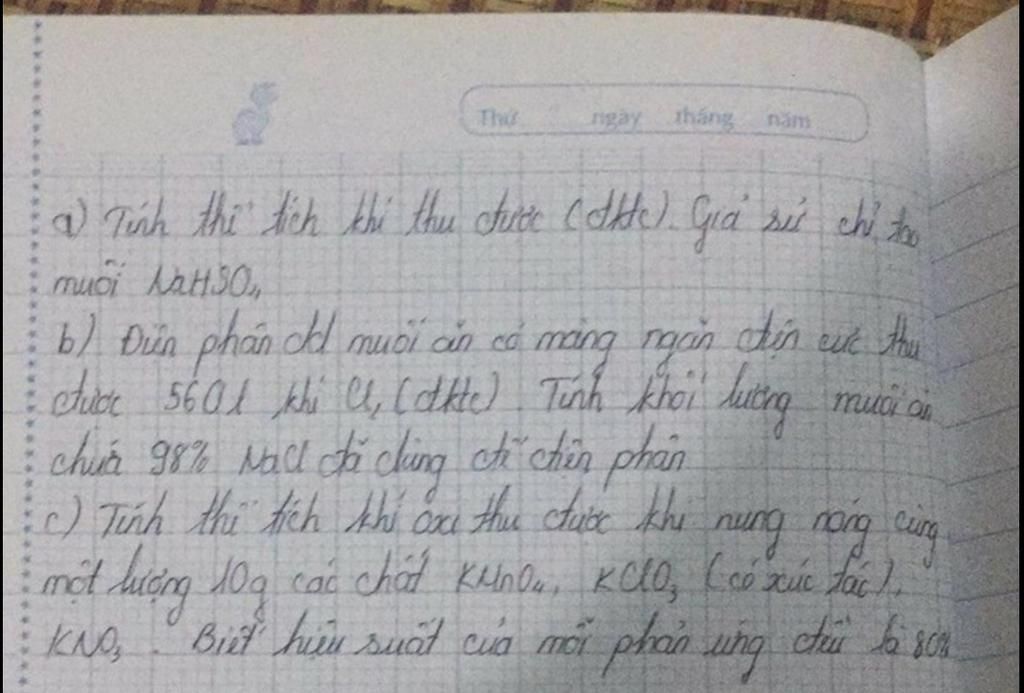 Thứ ngày tháng năm
a) Tính thể tích khí thu được (đktc). Giả sử chỉ tạo
muối NaHSO₄
b) Điện phân dd muối ăn có màng ngăn điện cực thu
được 560l khí Cl₂ (đktc). Tính khối lượng muối ăn
chứa 98% NaCl đã dùng để điện phân
c) Tính thể tích khí oxi thu được khi nung nóng cùng
một lượng 10g các chất KMnO₄, KClO₃ (có xúc tác),
KNO₃. Biết hiệu suất của mỗi phản ứng đều là 80%